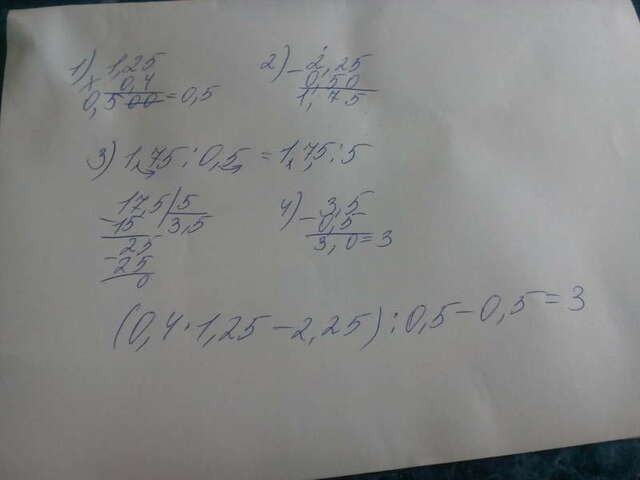 1) 1,25 2) - 2,25
x 0,4 0,50
0,500=0,5 1,75
3) 1,75:0,5=1,75:5
17,5/5 4) - 3,5
-15 3,5 0,5
25 3,0=3
-25
0
(0,4·1,25-2,25):0,5-0,5=3